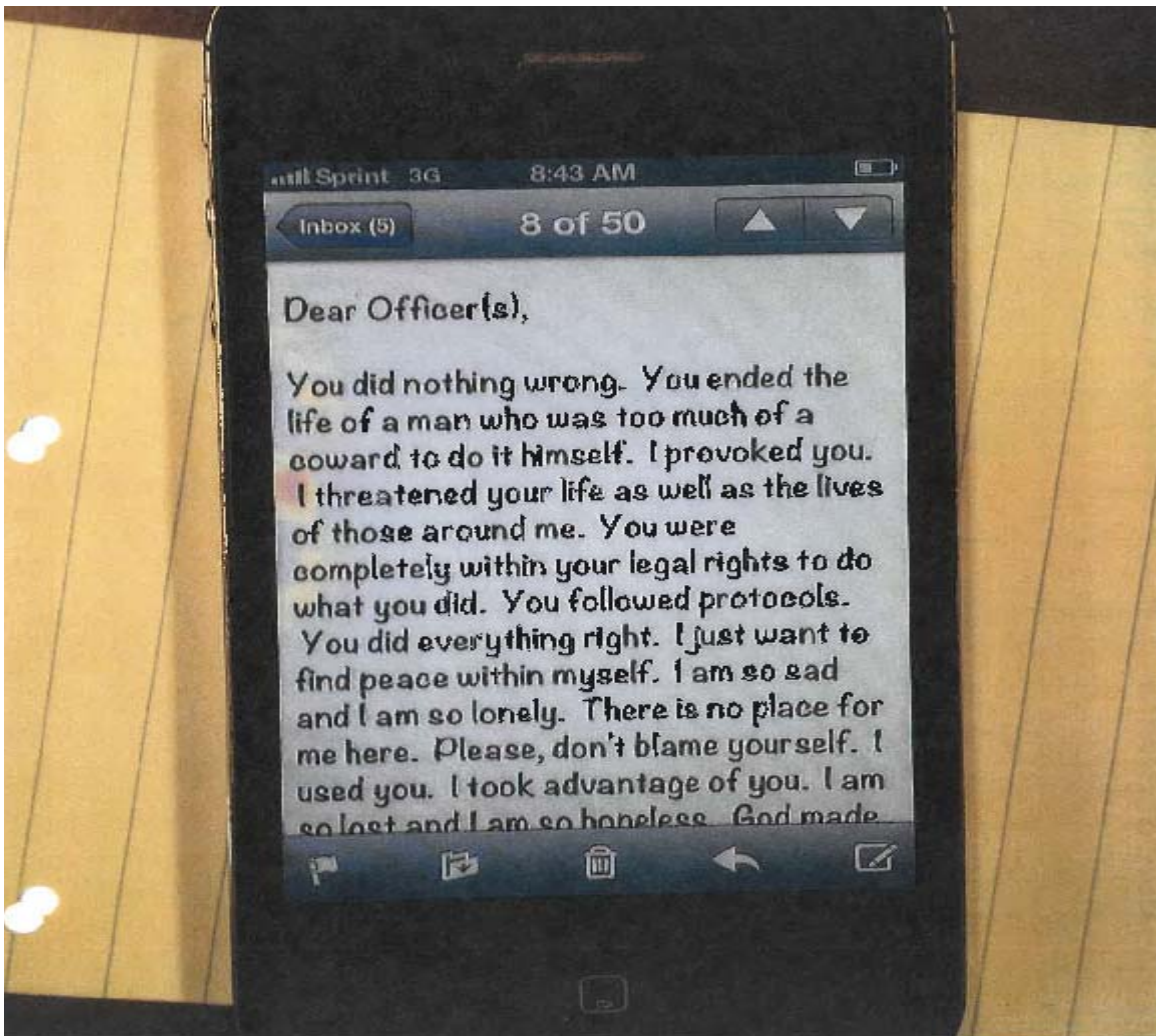 Sprint 3G 8:43 AM
Inbox (5) 8 of 50
Dear Officer(s),
You did nothing wrong. You ended the
life of a man who was too much of a
coward to do it himself. I provoked you.
I threatened your life as well as the lives
of those around me. You were
completely within your legal rights to do
what you did. You followed protocols.
You did everything right. I just want to
find peace within myself. I am so sad
and I am so lonely. There is no place for
me here. Please, don't blame yourself. I
used you. I took advantage of you. I am
so lost and I am so hopeless. God made